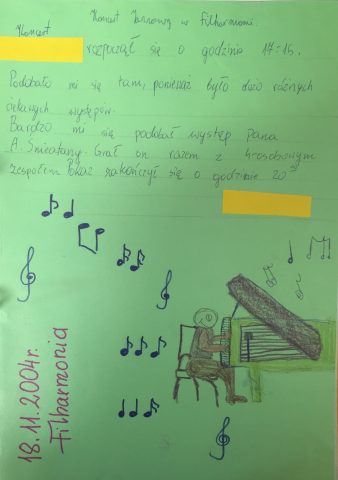 Koncert Jazzowy w Filharmonii.
Koncert
rozpoczął się o godzinie 17:15.
Podobało mi się tam, ponieważ było dużo różnych
ciekawych występów.
Bardzo mi się podobał występ Pana
A. Śmietany. Grał on razem z 4-osobowym
zespołem. Pokaz zakończył się o godzinie 20
18.11.2004r.
Filharmonia